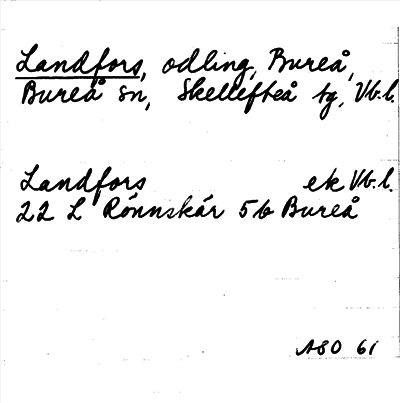 Landfors, odling, Bureå,
Bureå sn, Skellefteå tg, Vb.l.
Landfors ek Vb.l.
22 L Rönnskär 5b Bureå
ASO 61